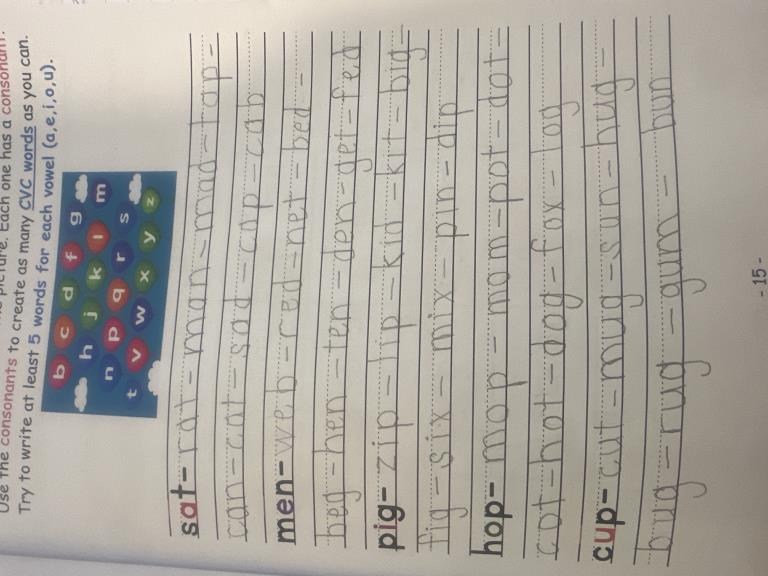 Use the consonants picture. Each one has a consonant.
Try to write at least 5 words for each vowel (a,e,i,o,u).
to create as many CVC words as you can.
b c d f g
h j k l m
n p q r s
t v w x y z
sat- rat - man - mad - tap -
can - cat - sad - cap - cab
men- web - red - net - bed -
beg - hen - ten - den - get - fed
pig- zip - lip - kid - kit - big -
fig - six - mix - pin - dip
hop- mop - mom - pot - dot -
cot - hot - dog - fox - log
cup- cut - mug - sun - hug -
bug - rug - gum - bun
- 15 -